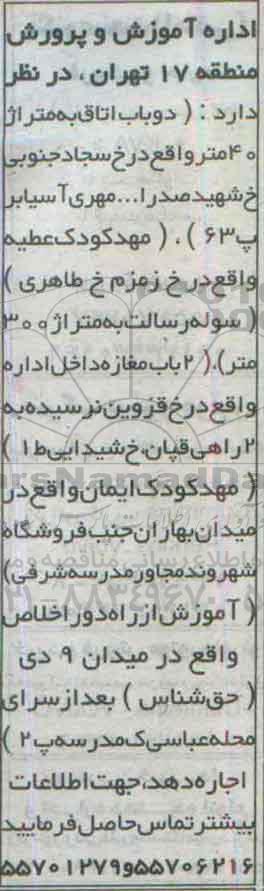 اداره آموزش و پرورش
منطقه ۱۷ تهران ، در نظر
دارد : ( دو باب اتاق به متراژ
۴۰ متر واقع در خ سجاد جنوبی
خ شهید صدرا... مهری آسیابر
پ ۶۳ ) ، ( مهدکودک عطیه
واقع در خ زمزم خ طاهری )
( سوله رسالت به متراژ ۳۰۰
متر) ، ( ۲ باب مغازه داخل اداره
واقع در خ قزوین نرسیده به
۲ راهی قپان ، خ شیدایی ط ۱ )
( مهد کودک ایمان واقع در
میدان بهاران جنب فروشگاه
شهروند مجاور مدرسه شرقی)
( آموزش از راه دور اخلاص
واقع در میدان ۹ دی
( حق شناس ) بعد از سرای
محله عباسی ک مدرسه پ ۲ )
اجاره دهد، جهت اطلاعات
بیشتر تماس حاصل فرمایید
۵۵۷۰۶۲۱۶ و ۵۵۷۰۱۲۷۹